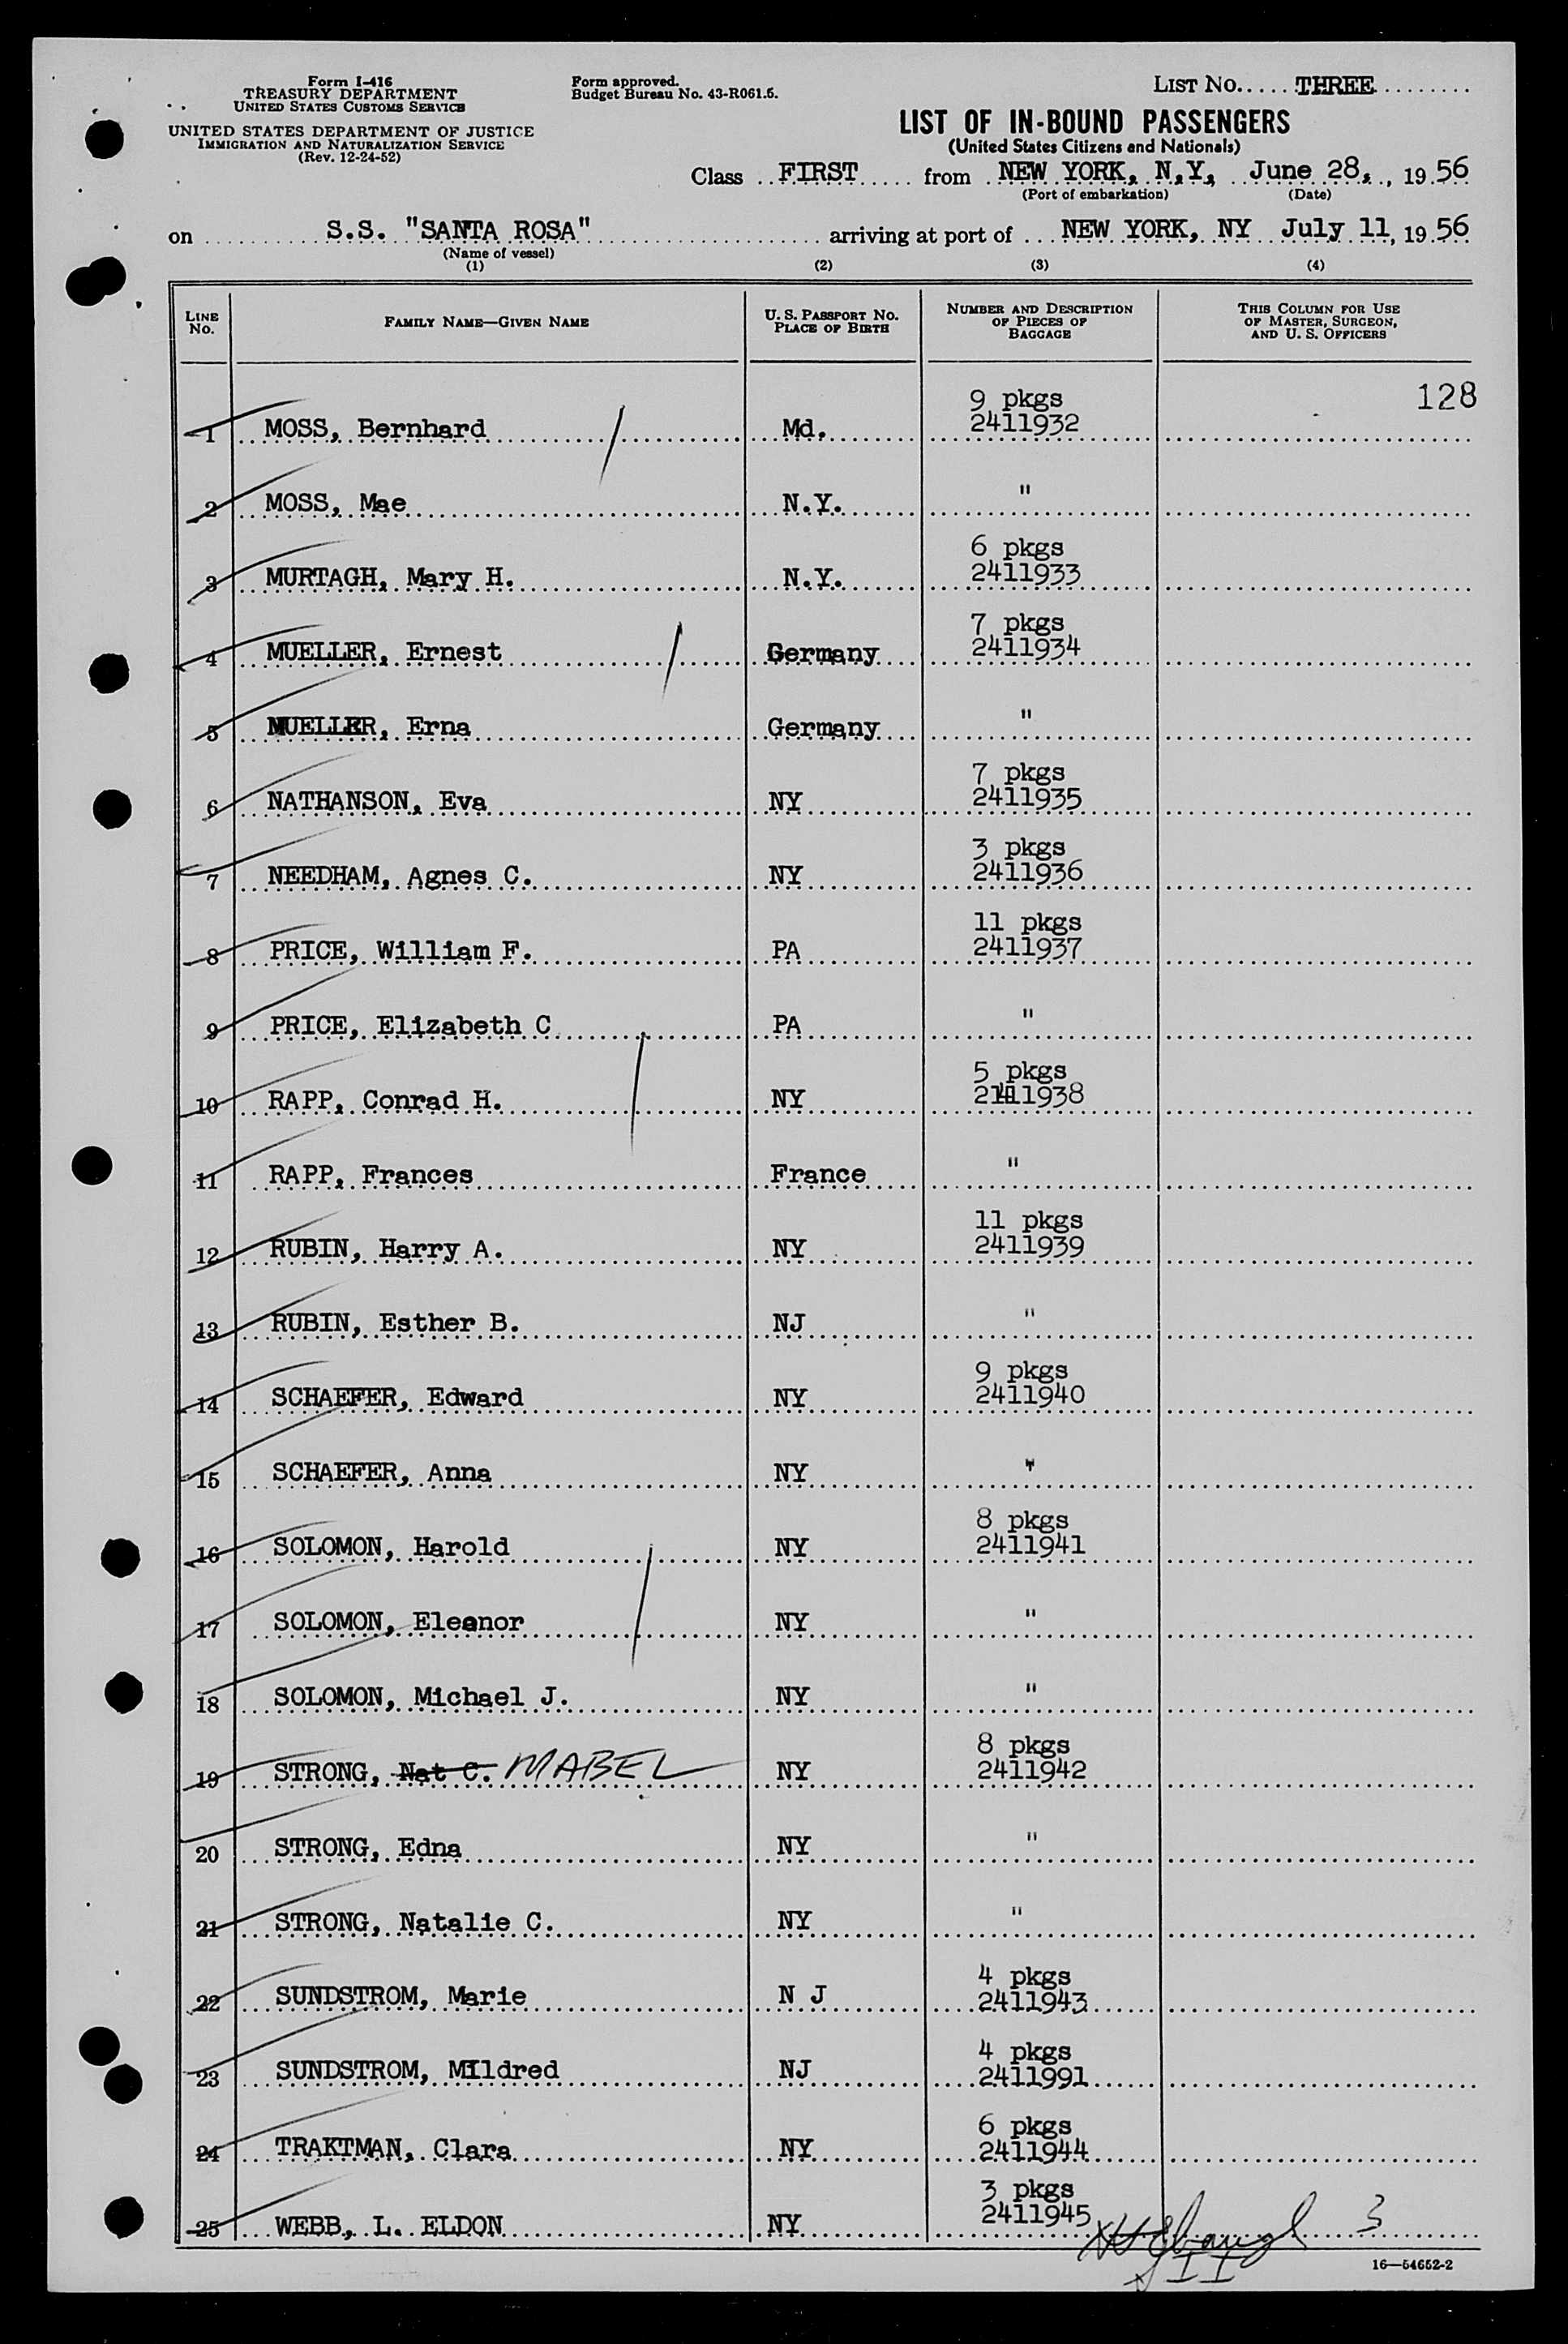 Form I-416
TREASURY DEPARTMENT
UNITED STATES CUSTOMS SERVICE
UNITED STATES DEPARTMENT OF JUSTICE
IMMIGRATION AND NATURALIZATION SERVICE
(Rev. 12-24-52)
Form approved.
Budget Bureau No. 43-R061.5.
LIST No..... THREE.........
LIST OF IN-BOUND PASSENGERS
(United States Citizens and Nationals)
Class FIRST from NEW YORK, N.Y, June 28, , 19 56
(Port of embarkation) (Date)
on S.S. "SANTA ROSA" arriving at port of NEW YORK, NY July 11, 19 56
(Name of vessel)
(1) (2) (3) (4)
LINE No. FAMILY NAME—GIVEN NAME U. S. PASSPORT No. PLACE OF BIRTH NUMBER AND DESCRIPTION OF PIECES OF BAGGAGE THIS COLUMN FOR USE OF MASTER, SURGEON, AND U. S. OFFICERS
128
9 pkgs
1 MOSS, Bernhard Md. 2411932
2 MOSS, Mae N.Y. "
6 pkgs
3 MURTAGH, Mary H. N.Y. 2411933
7 pkgs
4 MUELLER, Ernest Germany 2411934
5 MUELLER, Erna Germany "
7 pkgs
6 NATHANSON, Eva NY 2411935
3 pkgs
7 NEEDHAM, Agnes C. NY 2411936
11 pkgs
8 PRICE, William F. PA 2411937
9 PRICE, Elizabeth C PA "
5 pkgs
10 RAPP, Conrad H. NY 2411938
11 RAPP, Frances France "
11 pkgs
12 RUBIN, Harry A. NY 2411939
13 RUBIN, Esther B. NJ "
9 pkgs
14 SCHAEFER, Edward NY 2411940
15 SCHAEFER, Anna NY "
8 pkgs
16 SOLOMON, Harold NY 2411941
17 SOLOMON, Eleanor NY "
18 SOLOMON, Michael J. NY "
8 pkgs
19 STRONG, Nat C. MABEL NY 2411942
20 STRONG, Edna NY "
21 STRONG, Natalie C. NY "
4 pkgs
22 SUNDSTROM, Marie N J 2411943
4 pkgs
23 SUNDSTROM, MIldred NJ 2411991
6 pkgs
24 TRAKTMAN, Clara NY 2411944
3 pkgs
25 WEBB, L. ELDON NY 2411945
3
II
16—54652-2